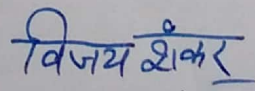 विजय शंकर